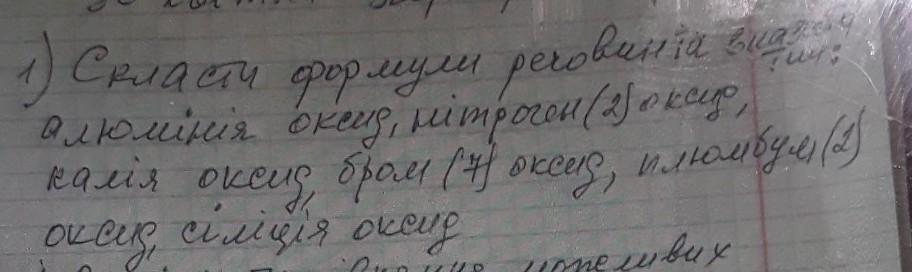 1) Скласти формули речовин та вказати
тип:
алюмінія оксид, нітроген (2) оксид,
калія оксид, бром (7) оксид, плюмбум (2)
оксид, сіліція оксид
можливих